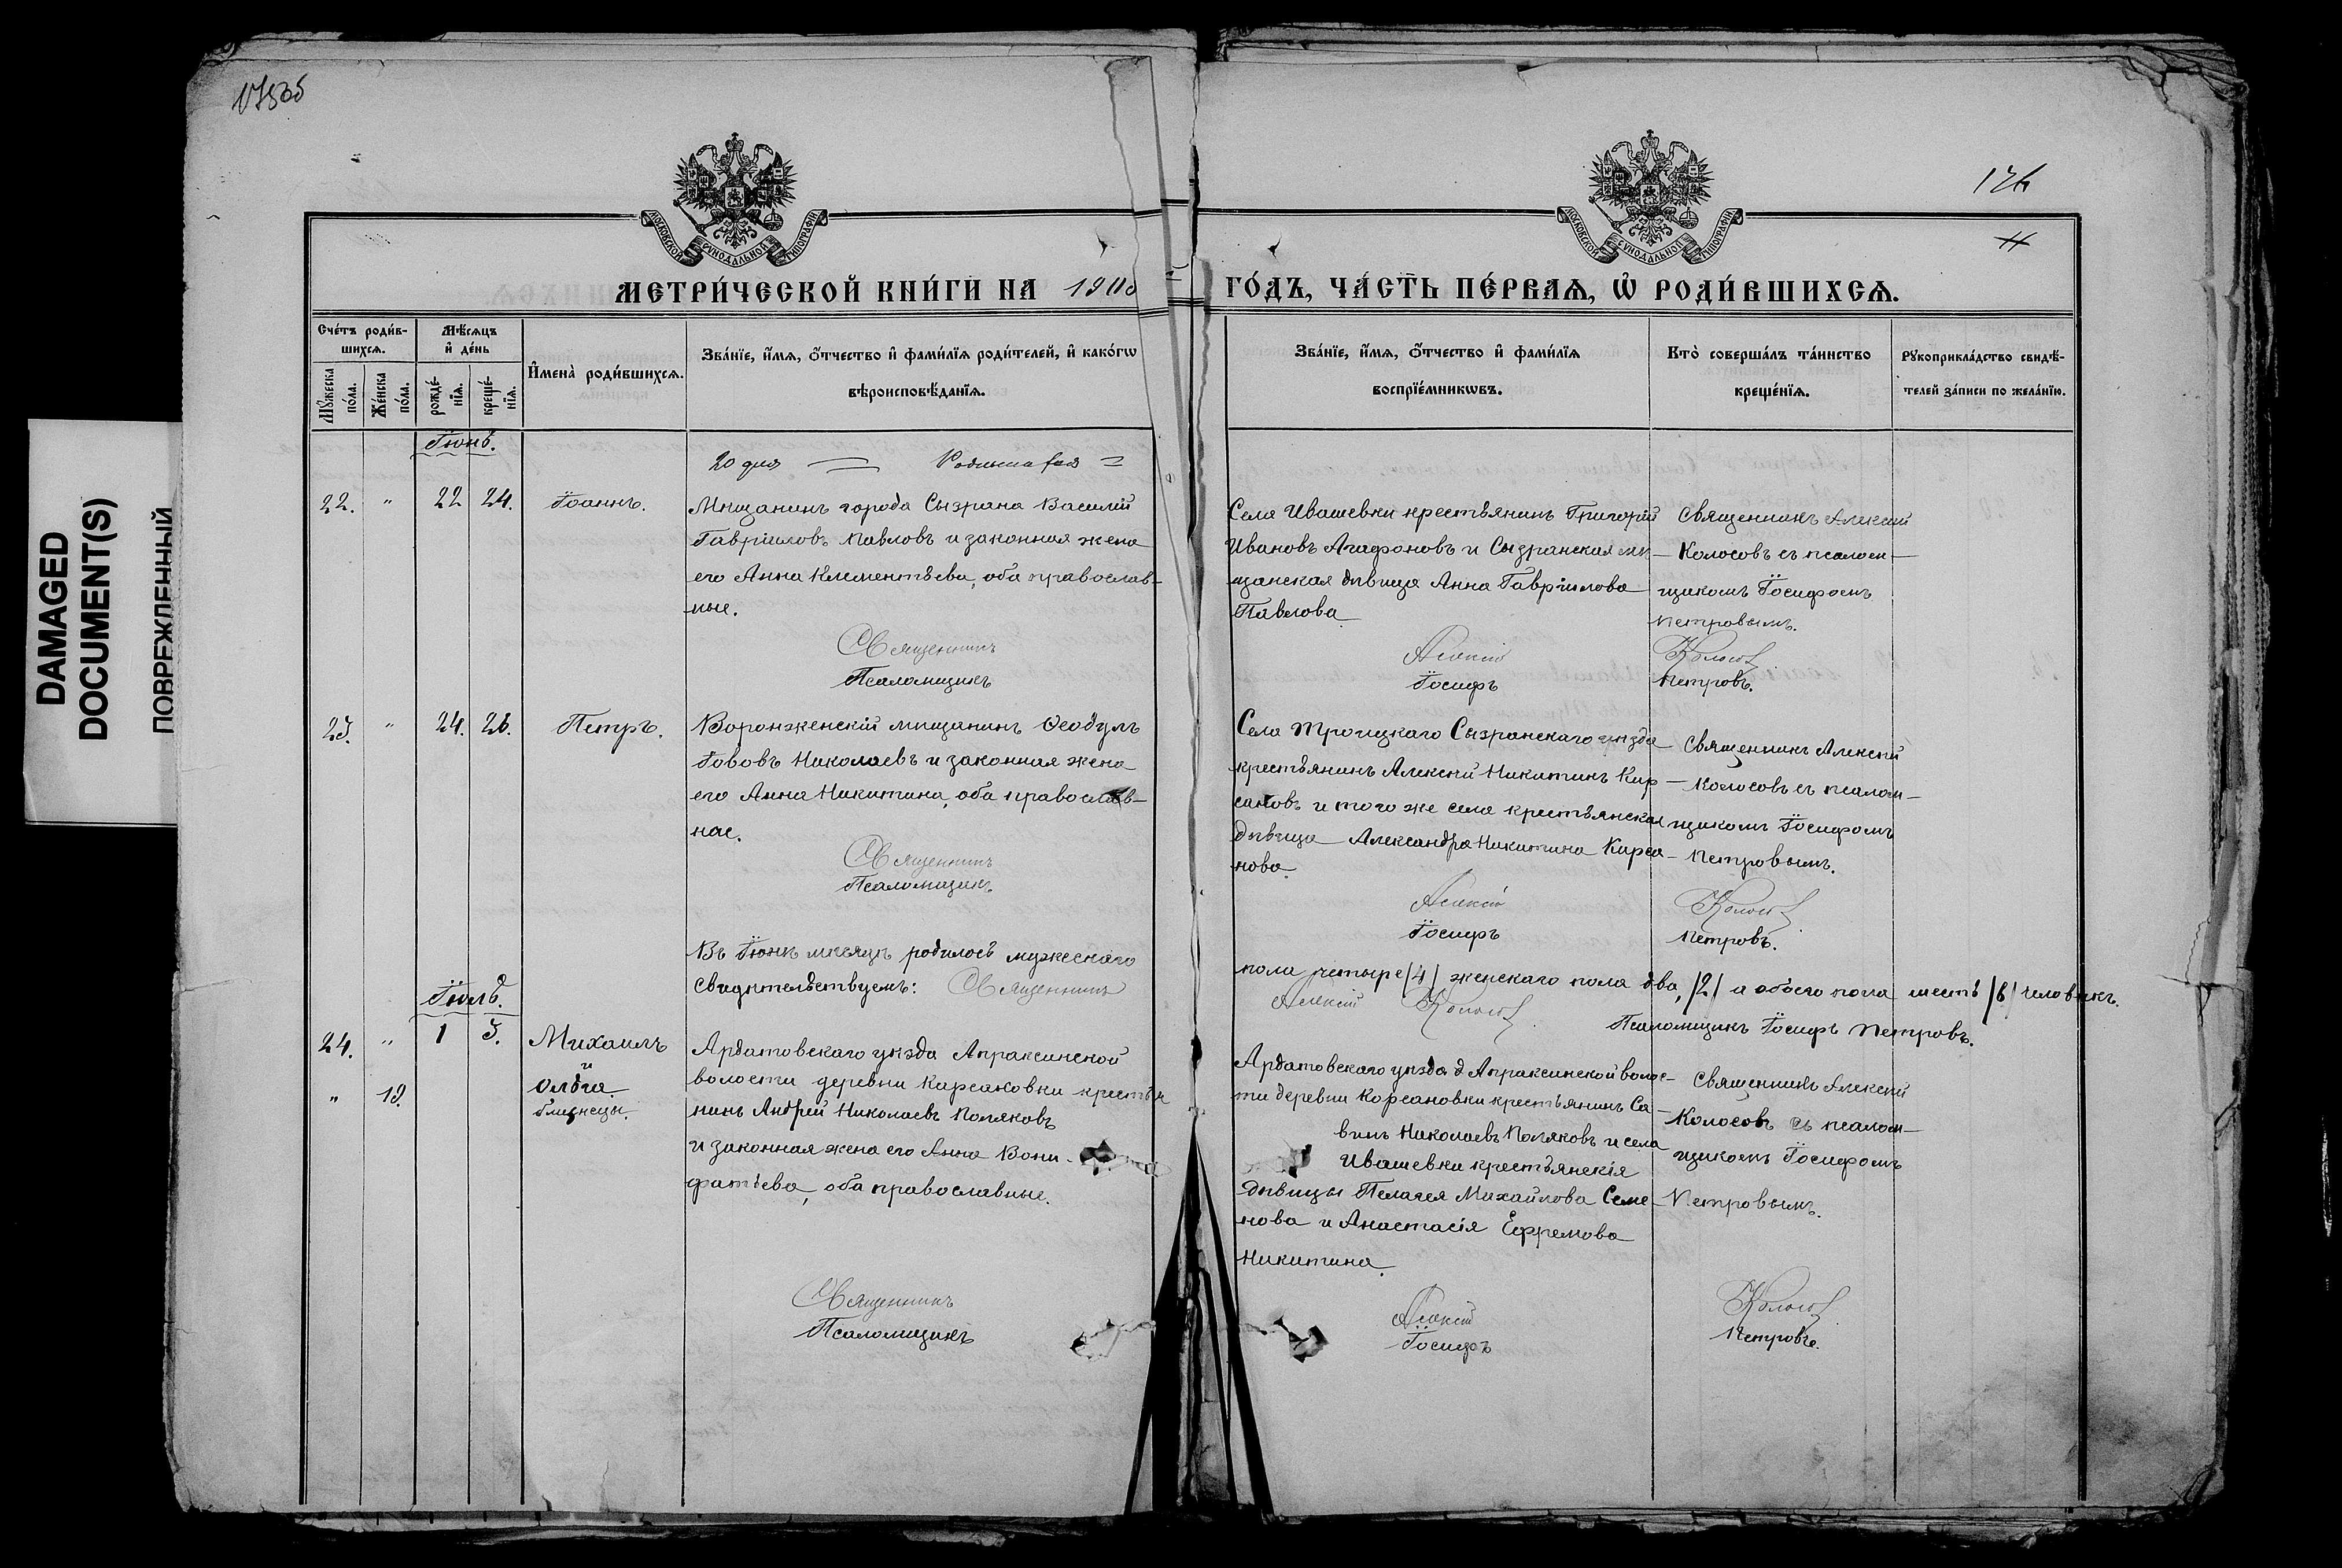 DAMAGED
DOCUMENT(S)
ПОВРЕЖДЕННЫЙ
176
МОСКОВСКОЙ СѴНОДАЛЬНОЙ ТИПОГРАФІИ
МОСКОВСКОЙ СѴНОДАЛЬНОЙ ТИПОГРАФІИ
МЕТРИ́ЧЕСКОЙ КНИ́ГИ НА 190
ГО́ДЪ, ЧА́СТЬ ПЕ́РВАѦ, Ѡ҆ РОДИ́ВШИХСѦ.
Сче́тъ роди́в-
шихсѧ.
Мꙋ́жеска по́ла.
Же́нска по́ла.
Мѣ́сѧцъ и҆ де́нь
рожде́-нїѧ.
креще́-нїѧ.
И҆мена̀ роди́вшихсѧ.
Зва́нїе, и҆́мѧ, ѻ҆́тчество и҆ фами́лїѧ роди́телей, и҆ како́гѡ
вѣроисповѣ́данїѧ.
Зва́нїе, и҆́мѧ, ѻ҆́тчество и҆ фами́лїѧ
воспрїе́мникѡвъ.
Кто̀ соверша́лъ та́инство
креще́нїѧ.
Рꙋкоприкла́дство свидѣ́-
телей за́писи по жела́нїю.
Іюнь.
20 дня
22. " 22 24. Іоаннъ.
Мѣщанинъ города Сызрана Василій
Гавріиловъ Павловъ и законная жена
его Анна Климентьева, оба православ-
ные.
Священникъ
Псаломщикъ
Села Ивашевки крестьянинъ Григорій
Ивановъ Агафоновъ и Сызранская мѣ-
щанская дѣвица Анна Гавріилова
Павлова
Алексій
Іосифъ
Священникъ Алексій
Колосовъ съ псалом-
щикомъ Іосифомъ
Петровымъ.
Колосов
Петровъ.
23. " 24. 26. Петръ.
Воронженскій мѣщанинъ Ѳеодулъ
Іововъ Николаевъ и законная жена
его Анна Никитина, оба православ-
ные.
Священникъ
Псаломщикъ
Села Троицкаго Сызранскаго уѣзда
крестьянинъ Алексій Никитинъ Кир-
сановъ и того же села крестьянская
дѣвица Александра Никитина Кирса-
нова.
Алексій
Іосифъ
Священникъ Алексій
Колосовъ съ псалом-
щикомъ Іосифомъ
Петровымъ.
Колосов
Петровъ.
Въ Іюнѣ мѣсяцѣ родилось мужескаго
пола четыре /4/ женскаго пола два, /2/ а обоего пола шесть /6/ человѣкъ.
Свидѣтельствуемъ: Священникъ
Алексій Колосов
Псаломщикъ Іосифъ Петровъ.
Іюль.
24. " 1 3. Михаилъ
и
" 19. Ольга
близнецы.
Ардатовскаго уѣзда Апраксинской
волости деревни Карсановки крестья
нинъ Андрей Николаевъ Поляковъ
и законная жена его Анна Вони-
фатьева, оба православные.
Священникъ
Псаломщикъ
Ардатовскаго уѣзда д Апраксинской волос-
ти деревни Корсановки крестьянинъ Са-
винъ Николаевъ Поляковъ и села
Ивашевки крестьянскія
дѣвицы Пелагея Михайлова Семе-
нова и Анастасія Ефремова
Никитина.
Алексій
Іосифъ
Священникъ Алексій
Колосовъ съ псалом-
щикомъ Іосифомъ
Петровымъ.
Колосов
Петровъ.